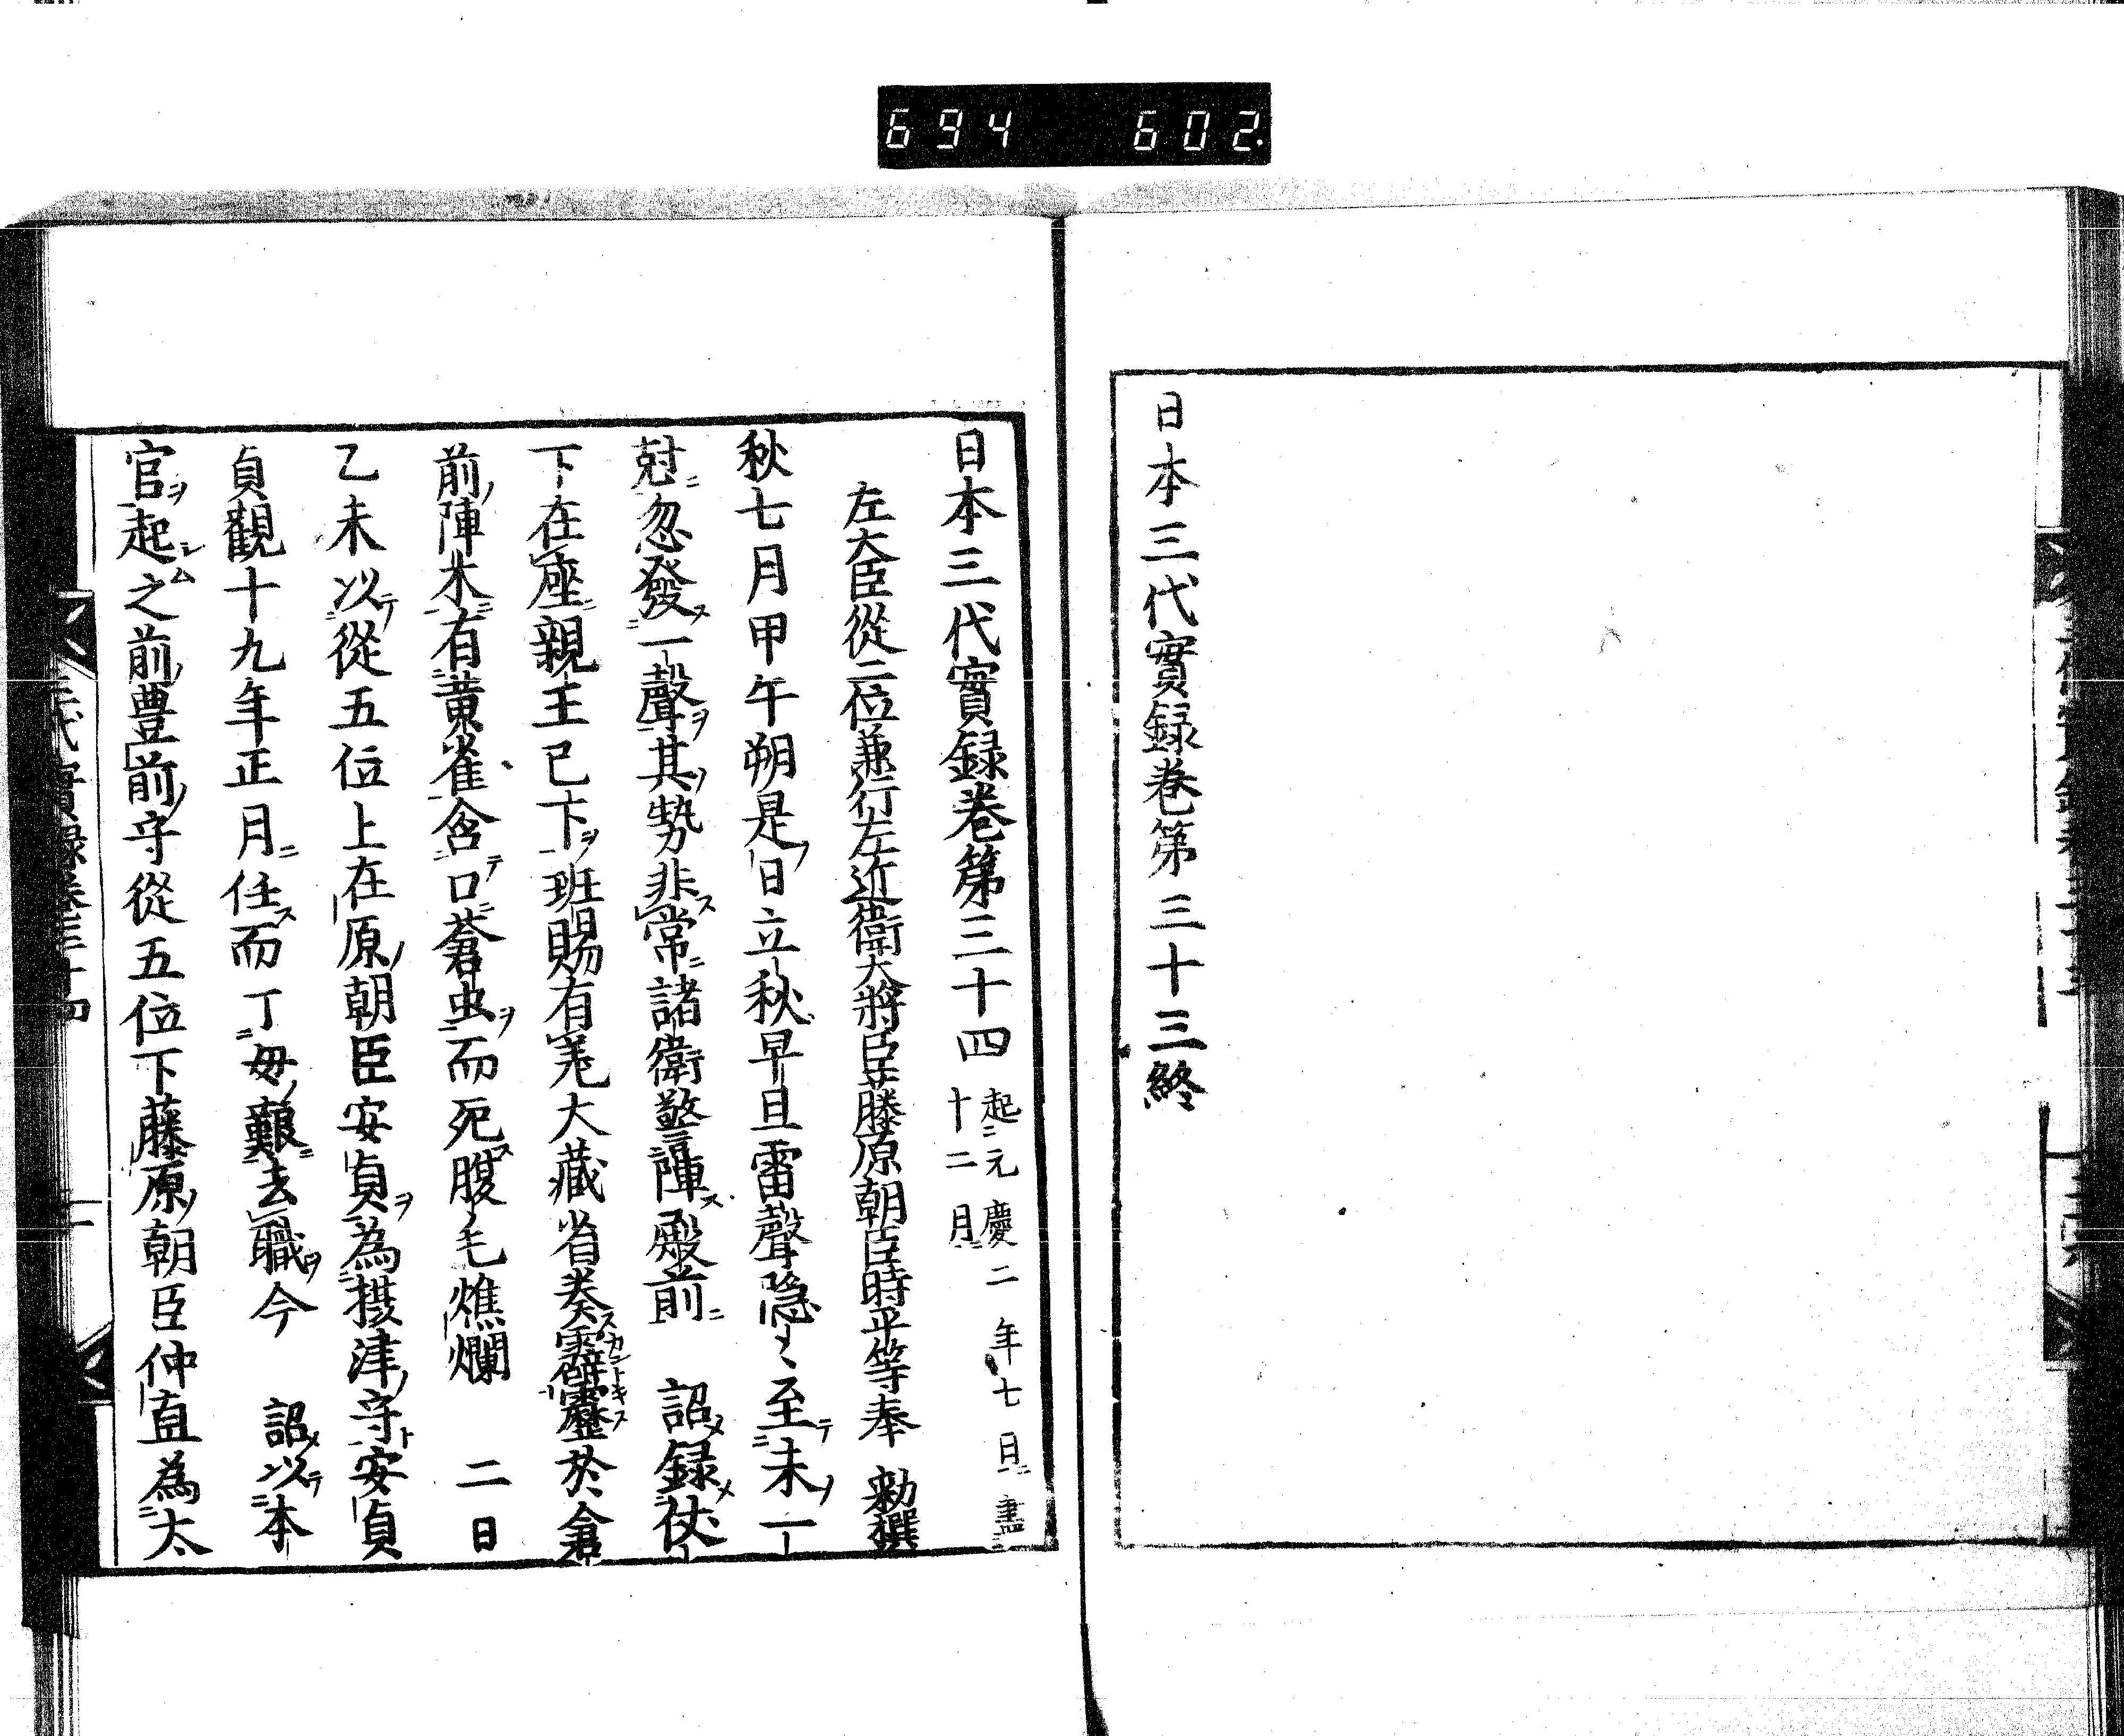 694 602
日本三代實録卷第三十三終
日本三代實録卷第三十四 起元慶二年七月盡十二月
左大臣從二位兼行左近衛大將臣藤原朝臣時平等奉 勅撰
秋七月甲午朔是日立秋早旦雷聲隠〻至未一
尅忽發一聲其勢非常諸衛警陣殿前 詔録仗
下在座親王已下班賜有差大藏省奏霹靂於倉
前陣木有黄雀含口蒼虫而死腹毛燋爛 二日
乙未以從五位上在原朝臣安貞為摂津守安貞
貞觀十九年正月任而丁母艱去職今 詔以本
官起之前豊前守從五位下藤原朝臣仲直為太
三代實録卷三十四 一